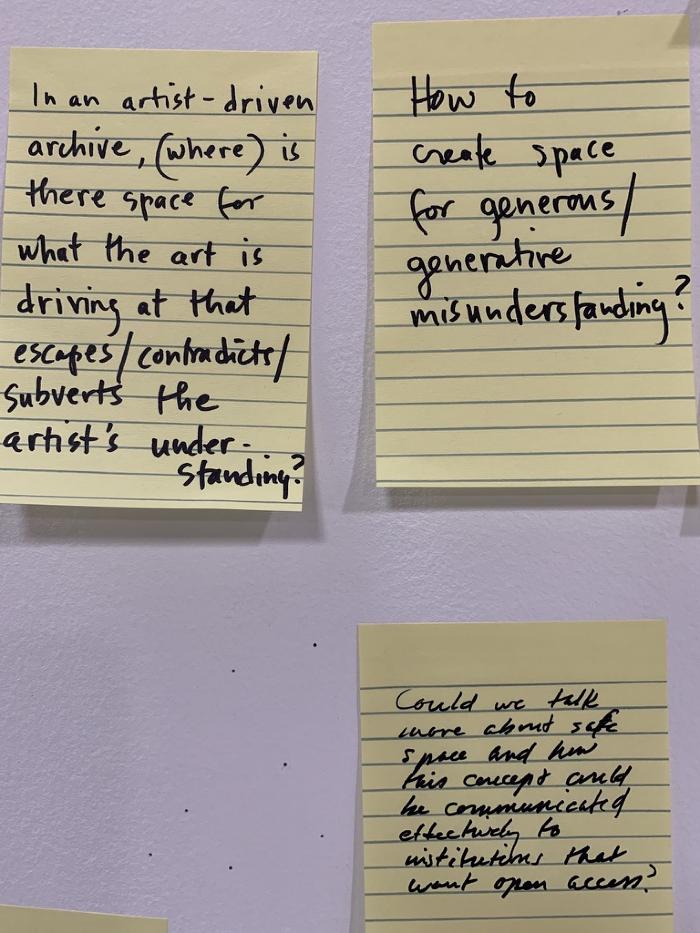 In an artist-driven
archive, (where) is
there space for
what the art is
driving at that
escapes/contradicts/
subverts the
artist's under-
standing?
How to
create space
for generous/
generative
misunderstanding?
Could we talk
more about safe
space and how
this concept could
be communicated
effectively to
institutions that
want open access?